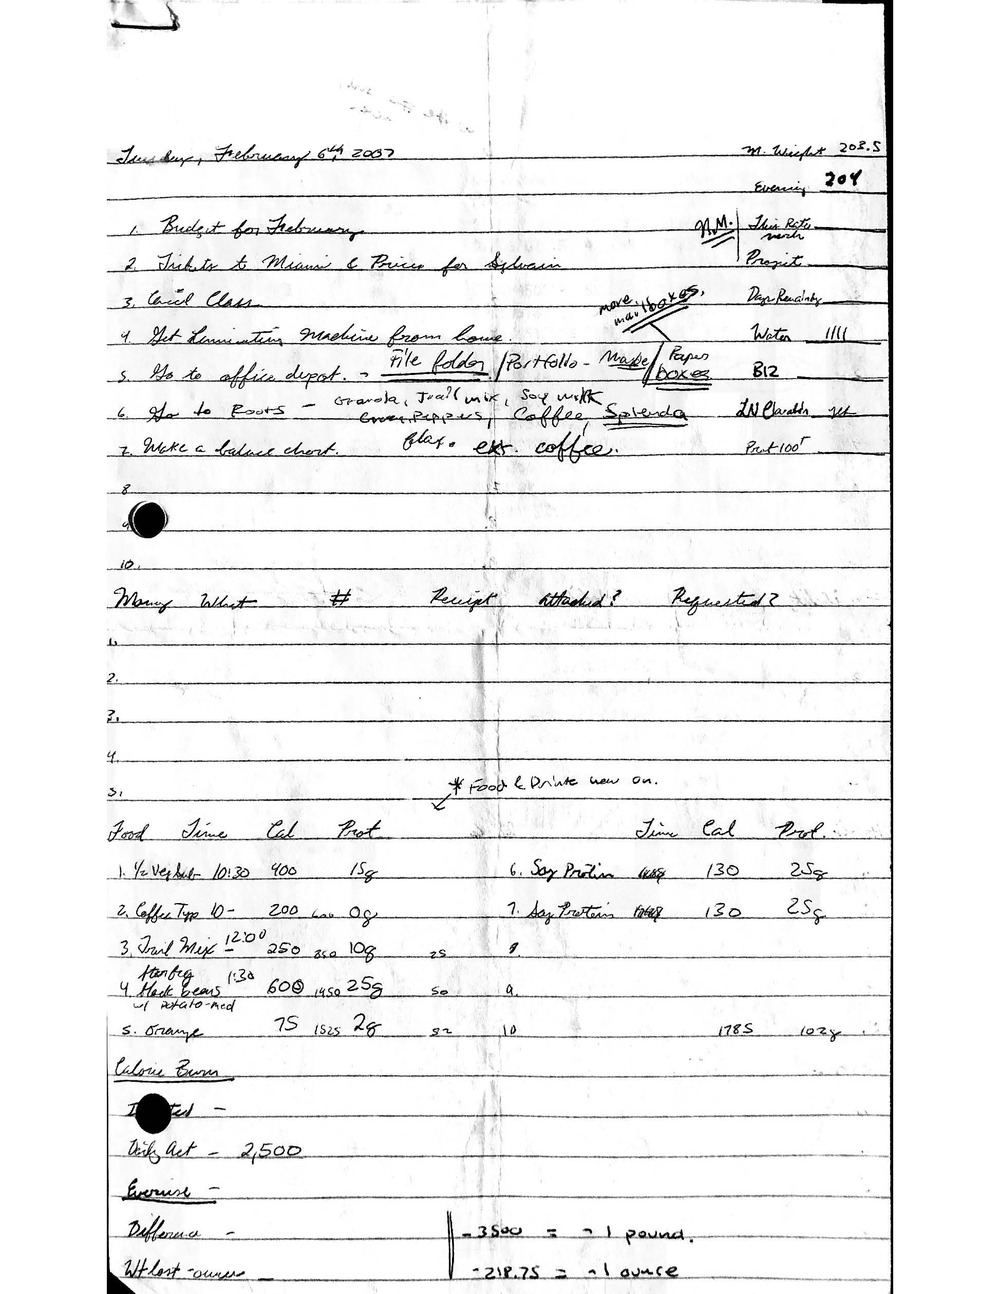 Tuesday, February 6th, 2007 M. Weight 203.5
Evening 204
1. Budget for February N.M. This Rate
2. Tickets to Miami & Prices for Sylvain Project
3. Excel Class more mailboxes. Days Remaining
4. Get Laminating Machine from home. Water IIII
5. Go to office depot. - File folder / Portfolio - Maybe / Paper boxes B12
6. Go to Roots - Granola, Trail mix, Soy milk
Green Peppers, Coffee, Splenda
7. Make a balance chart. flax. ext. coffee. Prot 100+
8
9
10.
Money What # Receipt attached? Requested?
1.
2.
3.
4.
5.
* Food & Drinks now on.
Food Time Cal Prot Time Cal Prot.
1. 1/2 Veg Sub 10:30 400 15g 6. Soy Protin 130 25g
2. Coffee Typ 10- 200 600 0g 7. Soy Protein 130 25g
3. Trail Mix 12:00 250 850 10g 25 8.
4. black beans 1:30 600 1450 25g 50 9.
w/ potato-med
5. Orange 75 1525 2g 52 10 1785 102g
Calorie Burn
Daily Act - 2,500
Exercise -
Difference - -3500 = -1 pound.
Wt lost - ounces - -218.75 = -1 ounce